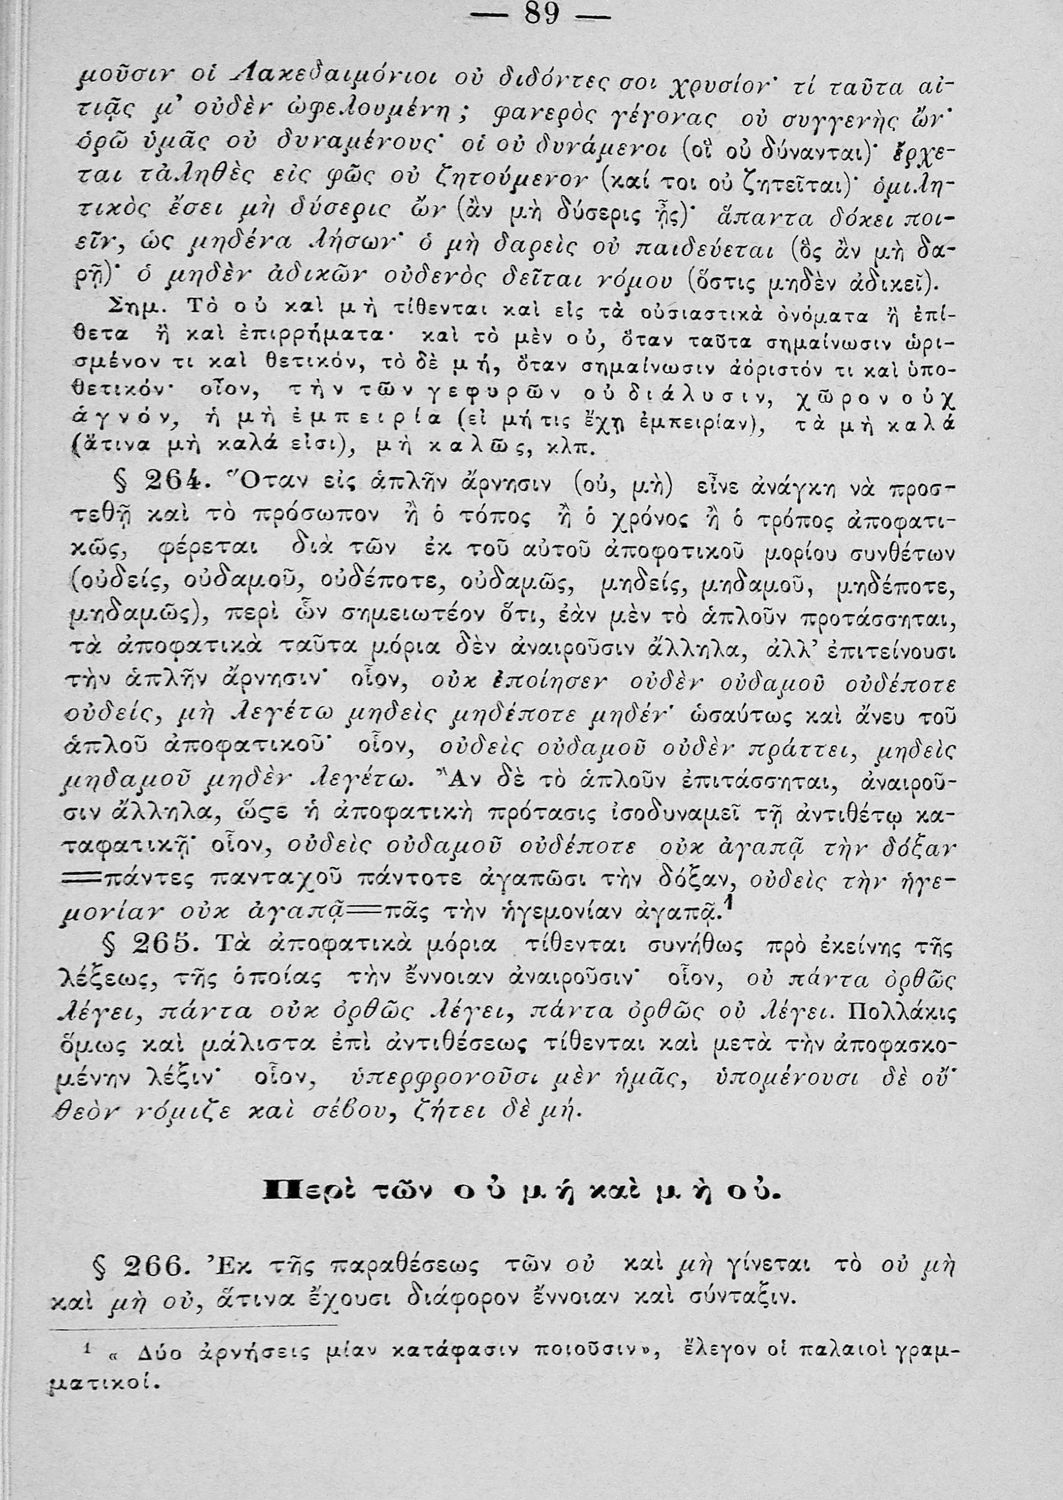 — 89 —
μοῦσιν οἱ Λακεδαιμόνιοι οὐ διδόντες σοι χρυσίον· τί ταῦτα αἰ-
τιᾷς μ' οὐδὲν ὠφελουμένη ; φανερὸς γέγονας οὐ συγγενὴς ὤν·
ὁρῶ ὑμᾶς οὐ δυναμένους· οἱ οὐ δυνάμενοι (οἳ οὐ δύνανται)· ἔρχε-
ται τἀληθὲς εἰς φῶς οὐ ζητούμενον (καί τοι οὐ ζητεῖται)· ὁμιλη-
τικὸς ἔσει μὴ δύσερις ὤν (ἂν μὴ δύσερις ᾖς)· ἅπαντα δόκει ποι-
εῖν, ὡς μηδένα λήσων· ὁ μὴ δαρεὶς οὐ παιδεύεται (ὃς ἂν μὴ δα-
ρῇ)· ὁ μηδὲν ἀδικῶν οὐδενὸς δεῖται νόμου (ὅστις μηδὲν ἀδικεῖ).
Σημ. Τὸ οὐ καὶ μὴ τίθενται καὶ εἰς τὰ οὐσιαστικὰ ὀνόματα ἢ ἐπί-
θετα ἢ καὶ ἐπιρρήματα· καὶ τὸ μὲν οὐ, ὅταν ταῦτα σημαίνωσιν ὡρι-
σμένον τι καὶ θετικόν, τὸ δὲ μή, ὅταν σημαίνωσιν ἀόριστόν τι καὶ ὑπο-
θετικόν· οἷον, τὴν τῶν γεφυρῶν οὐ διάλυσιν, χῶρον οὐχ
ἁγνόν, ἡ μὴ ἐμπειρία (εἰ μή τις ἔχῃ ἐμπειρίαν), τὰ μὴ καλά
(ἅτινα μὴ καλά εἰσι), μὴ καλῶς, κλπ.
§ 264. Ὅταν εἰς ἁπλῆν ἄρνησιν (οὐ, μὴ) εἶνε ἀνάγκη νὰ προσ-
τεθῇ καὶ τὸ πρόσωπον ἢ ὁ τόπος ἢ ὁ χρόνος ἢ ὁ τρόπος ἀποφατι-
κῶς, φέρεται διὰ τῶν ἐκ τοῦ αὐτοῦ ἀποφοτικοῦ μορίου συνθέτων
(οὐδείς, οὐδαμοῦ, οὐδέποτε, οὐδαμῶς, μηδείς, μηδαμοῦ, μηδέποτε,
μηδαμῶς), περὶ ὧν σημειωτέον ὅτι, ἐὰν μὲν τὸ ἁπλοῦν προτάσσηται,
τὰ ἀποφατικὰ ταῦτα μόρια δὲν ἀναιροῦσιν ἄλληλα, ἀλλ' ἐπιτείνουσι
τὴν ἁπλῆν ἄρνησιν· οἷον, οὐκ ἐποίησεν οὐδὲν οὐδαμοῦ οὐδέποτε
οὐδείς, μὴ λεγέτω μηδεὶς μηδέποτε μηδέν· ὡσαύτως καὶ ἄνευ τοῦ
ἁπλοῦ ἀποφατικοῦ· οἷον, οὐδεὶς οὐδαμοῦ οὐδὲν πράττει, μηδεὶς
μηδαμοῦ μηδὲν λεγέτω. Ἂν δὲ τὸ ἁπλοῦν ἐπιτάσσηται, ἀναιροῦ-
σιν ἄλληλα, ὥςε ἡ ἀποφατικὴ πρότασις ἰσοδυναμεῖ τῇ ἀντιθέτῳ κα-
ταφατικῇ· οἷον, οὐδεὶς οὐδαμοῦ οὐδέποτε οὐκ ἀγαπᾷ τὴν δόξαν
=πάντες πανταχοῦ πάντοτε ἀγαπῶσι τὴν δόξαν, οὐδεὶς τὴν ἡγε-
μονίαν οὐκ ἀγαπᾷ=πᾶς τὴν ἡγεμονίαν ἀγαπᾷ.¹
§ 265. Τὰ ἀποφατικὰ μόρια τίθενται συνήθως πρὸ ἐκείνης τῆς
λέξεως, τῆς ὁποίας τὴν ἔννοιαν ἀναιροῦσιν· οἷον, οὐ πάντα ὀρθῶς
λέγει, πάντα οὐκ ὀρθῶς λέγει, πάντα ὀρθῶς οὐ λέγει. Πολλάκις
ὅμως καὶ μάλιστα ἐπὶ ἀντιθέσεως τίθενται καὶ μετὰ τὴν ἀποφασκο-
μένην λέξιν· οἷον, ὑπερφρονοῦσι μὲν ἡμᾶς, ὑπομένουσι δὲ οὔ·
θεὸν νόμιζε καὶ σέβου, ζήτει δὲ μή.
Περὶ τῶν οὐ μή καὶ μὴ οὐ.
§ 266. Ἐκ τῆς παραθέσεως τῶν οὐ καὶ μὴ γίνεται τὸ οὐ μὴ
καὶ μὴ οὐ, ἅτινα ἔχουσι διάφορον ἔννοιαν καὶ σύνταξιν.
¹ « Δύο ἀρνήσεις μίαν κατάφασιν ποιοῦσιν», ἔλεγον οἱ παλαιοὶ γραμ-
ματικοί.